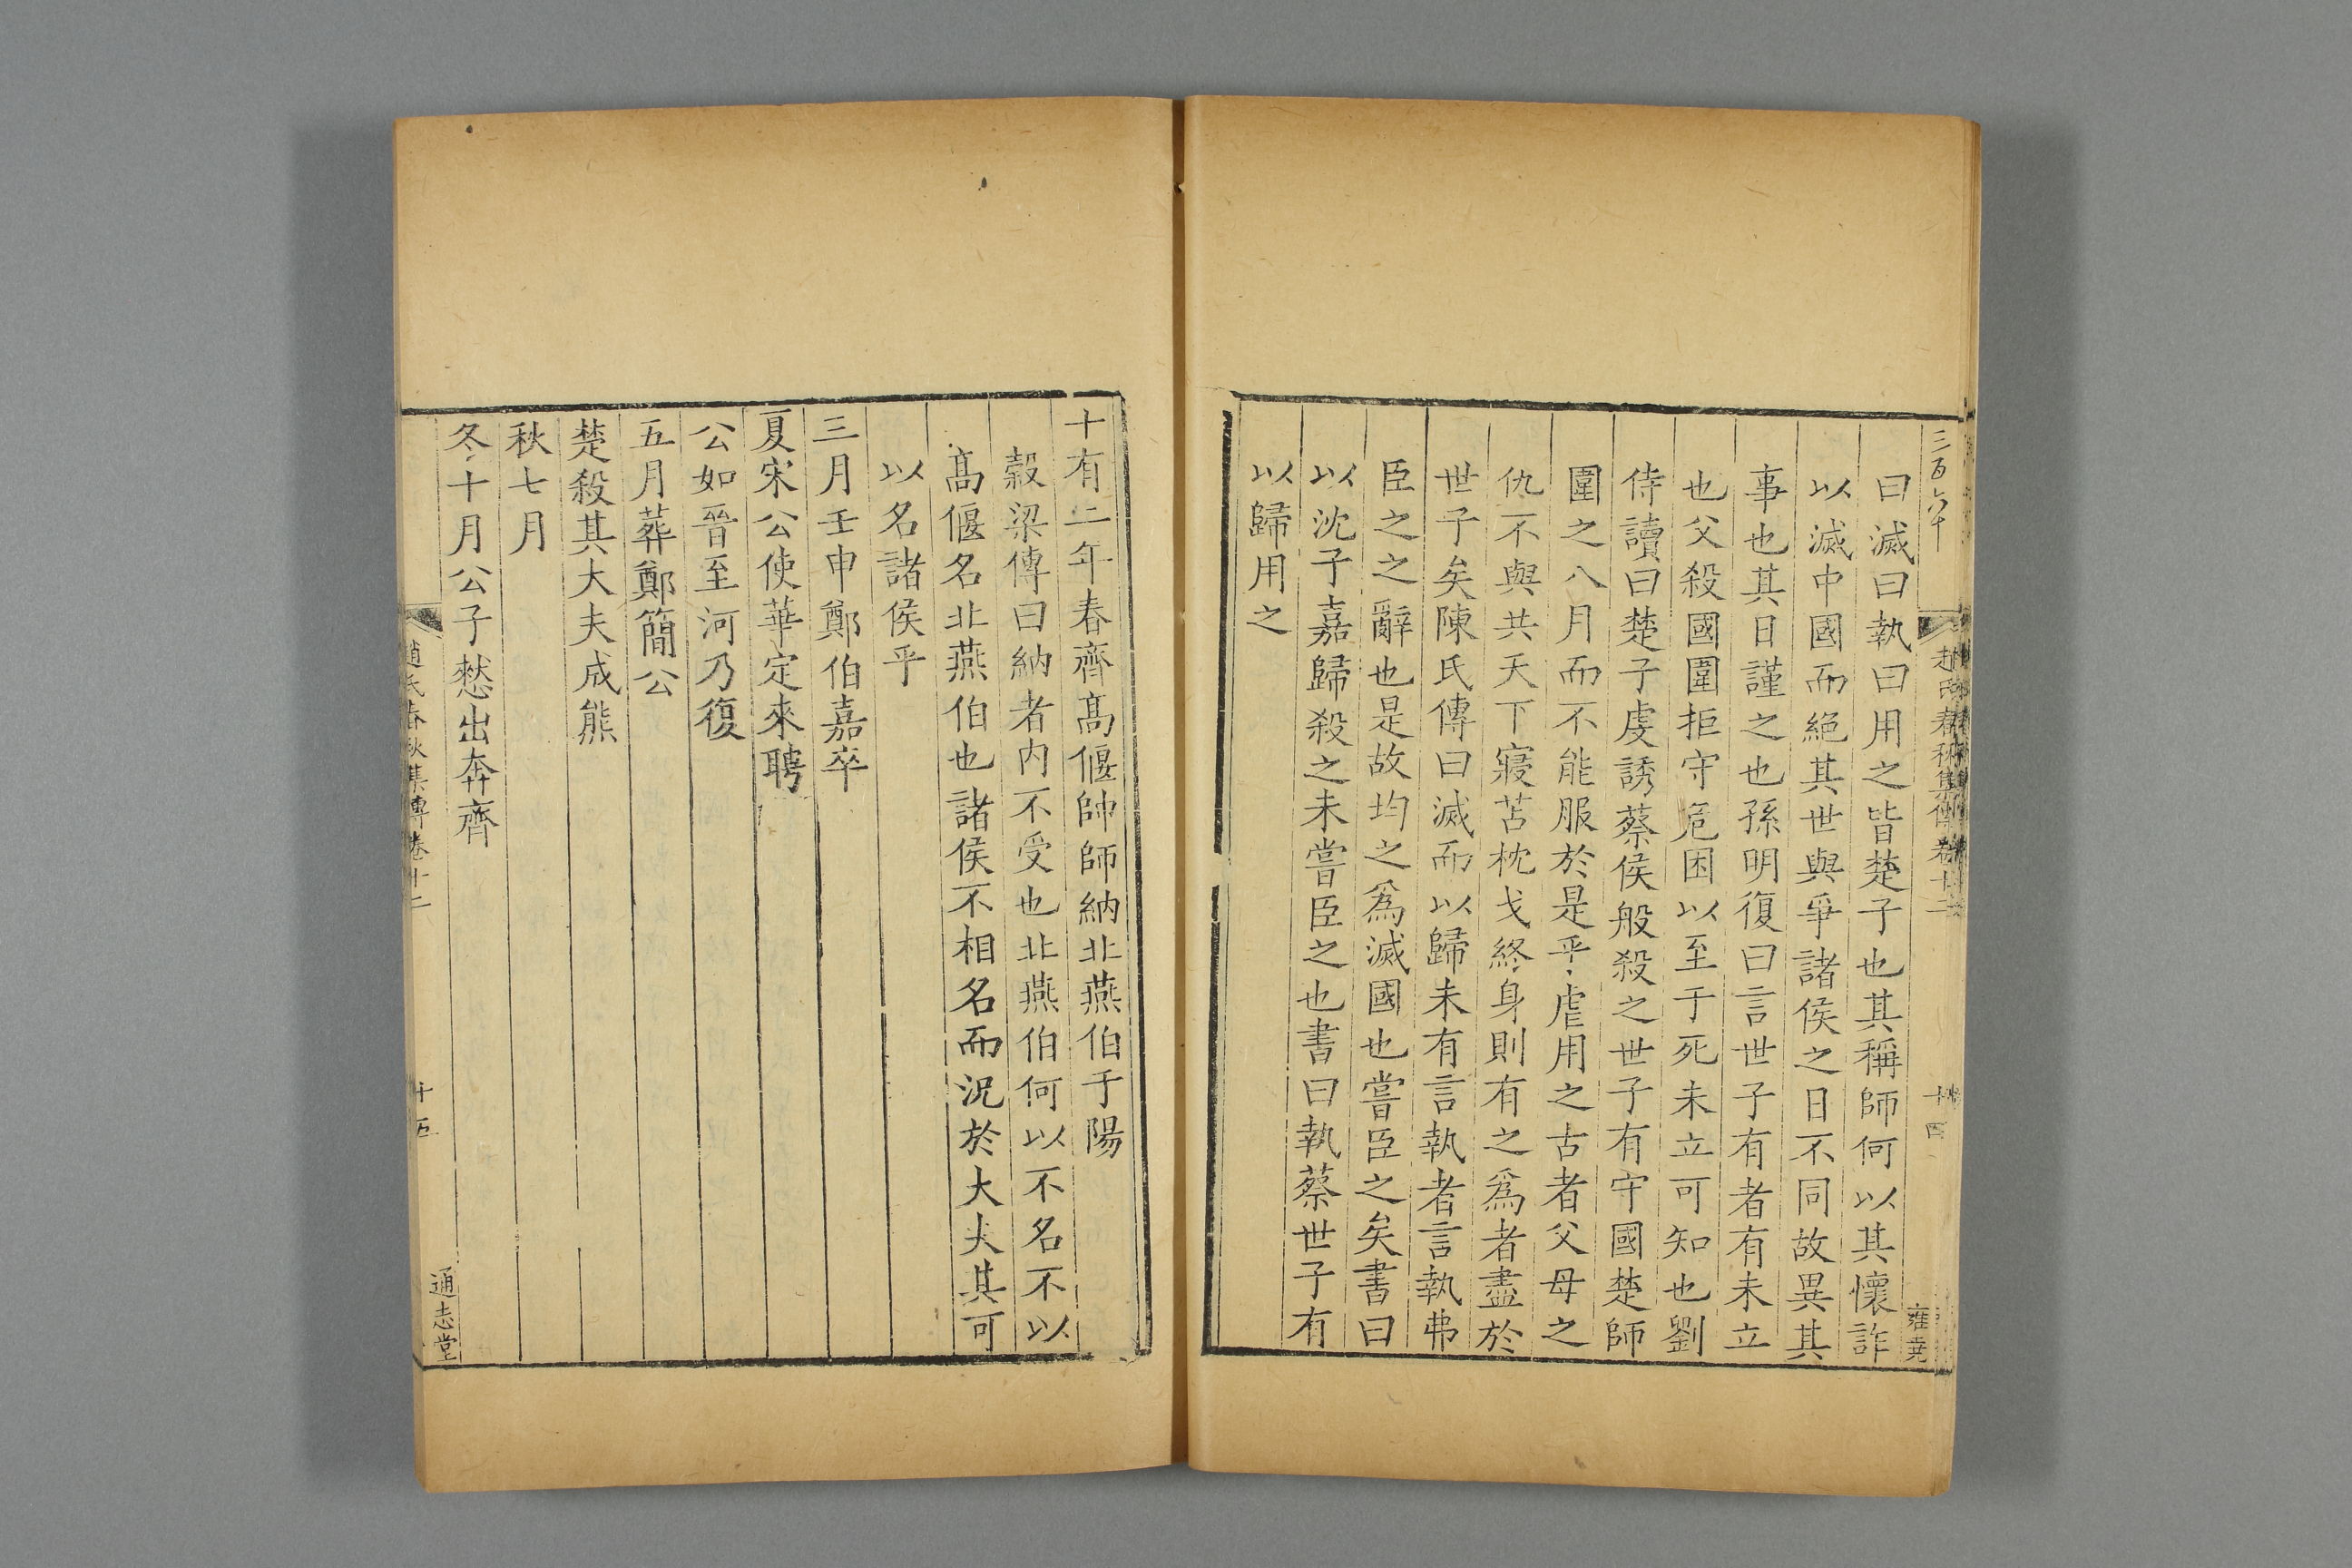 三百六十
趙氏春秋集傳卷十二
十四
雍堯
曰滅曰執曰用之皆楚子也其稱師何以其懷詐
以滅中國而絕其世與爭諸侯之日不同故異其
事也其日謹之也孫明復曰言世子有者有未立
也父殺國圍拒守危困以至于死未立可知也劉
侍讀曰楚子虔誘蔡侯般殺之世子有守國楚師
圍之八月而不能服於是乎虐用之古者父母之
仇不與共天下寢苫枕戈終身則有之爲者盡於
世子矣陳氏傳曰滅而以歸未有言執者言執弗
臣之之辭也是故均之爲滅國也嘗臣之矣書曰
以沈子嘉歸殺之未嘗臣之也書曰執蔡世子有
以歸用之
十有二年春齊髙偃帥師納北燕伯于陽
穀梁傳曰納者内不受也北燕伯何以不名不以
髙偃名北燕伯也諸侯不相名而況於大夫其可
以名諸侯乎
三月壬申鄭伯嘉卒
夏宋公使華定來聘
公如晉至河乃復
五月葬鄭簡公
楚殺其大夫成熊
秋七月
冬十月公子憖出奔齊
趙氏春秋集傳卷十二
十五
通志堂